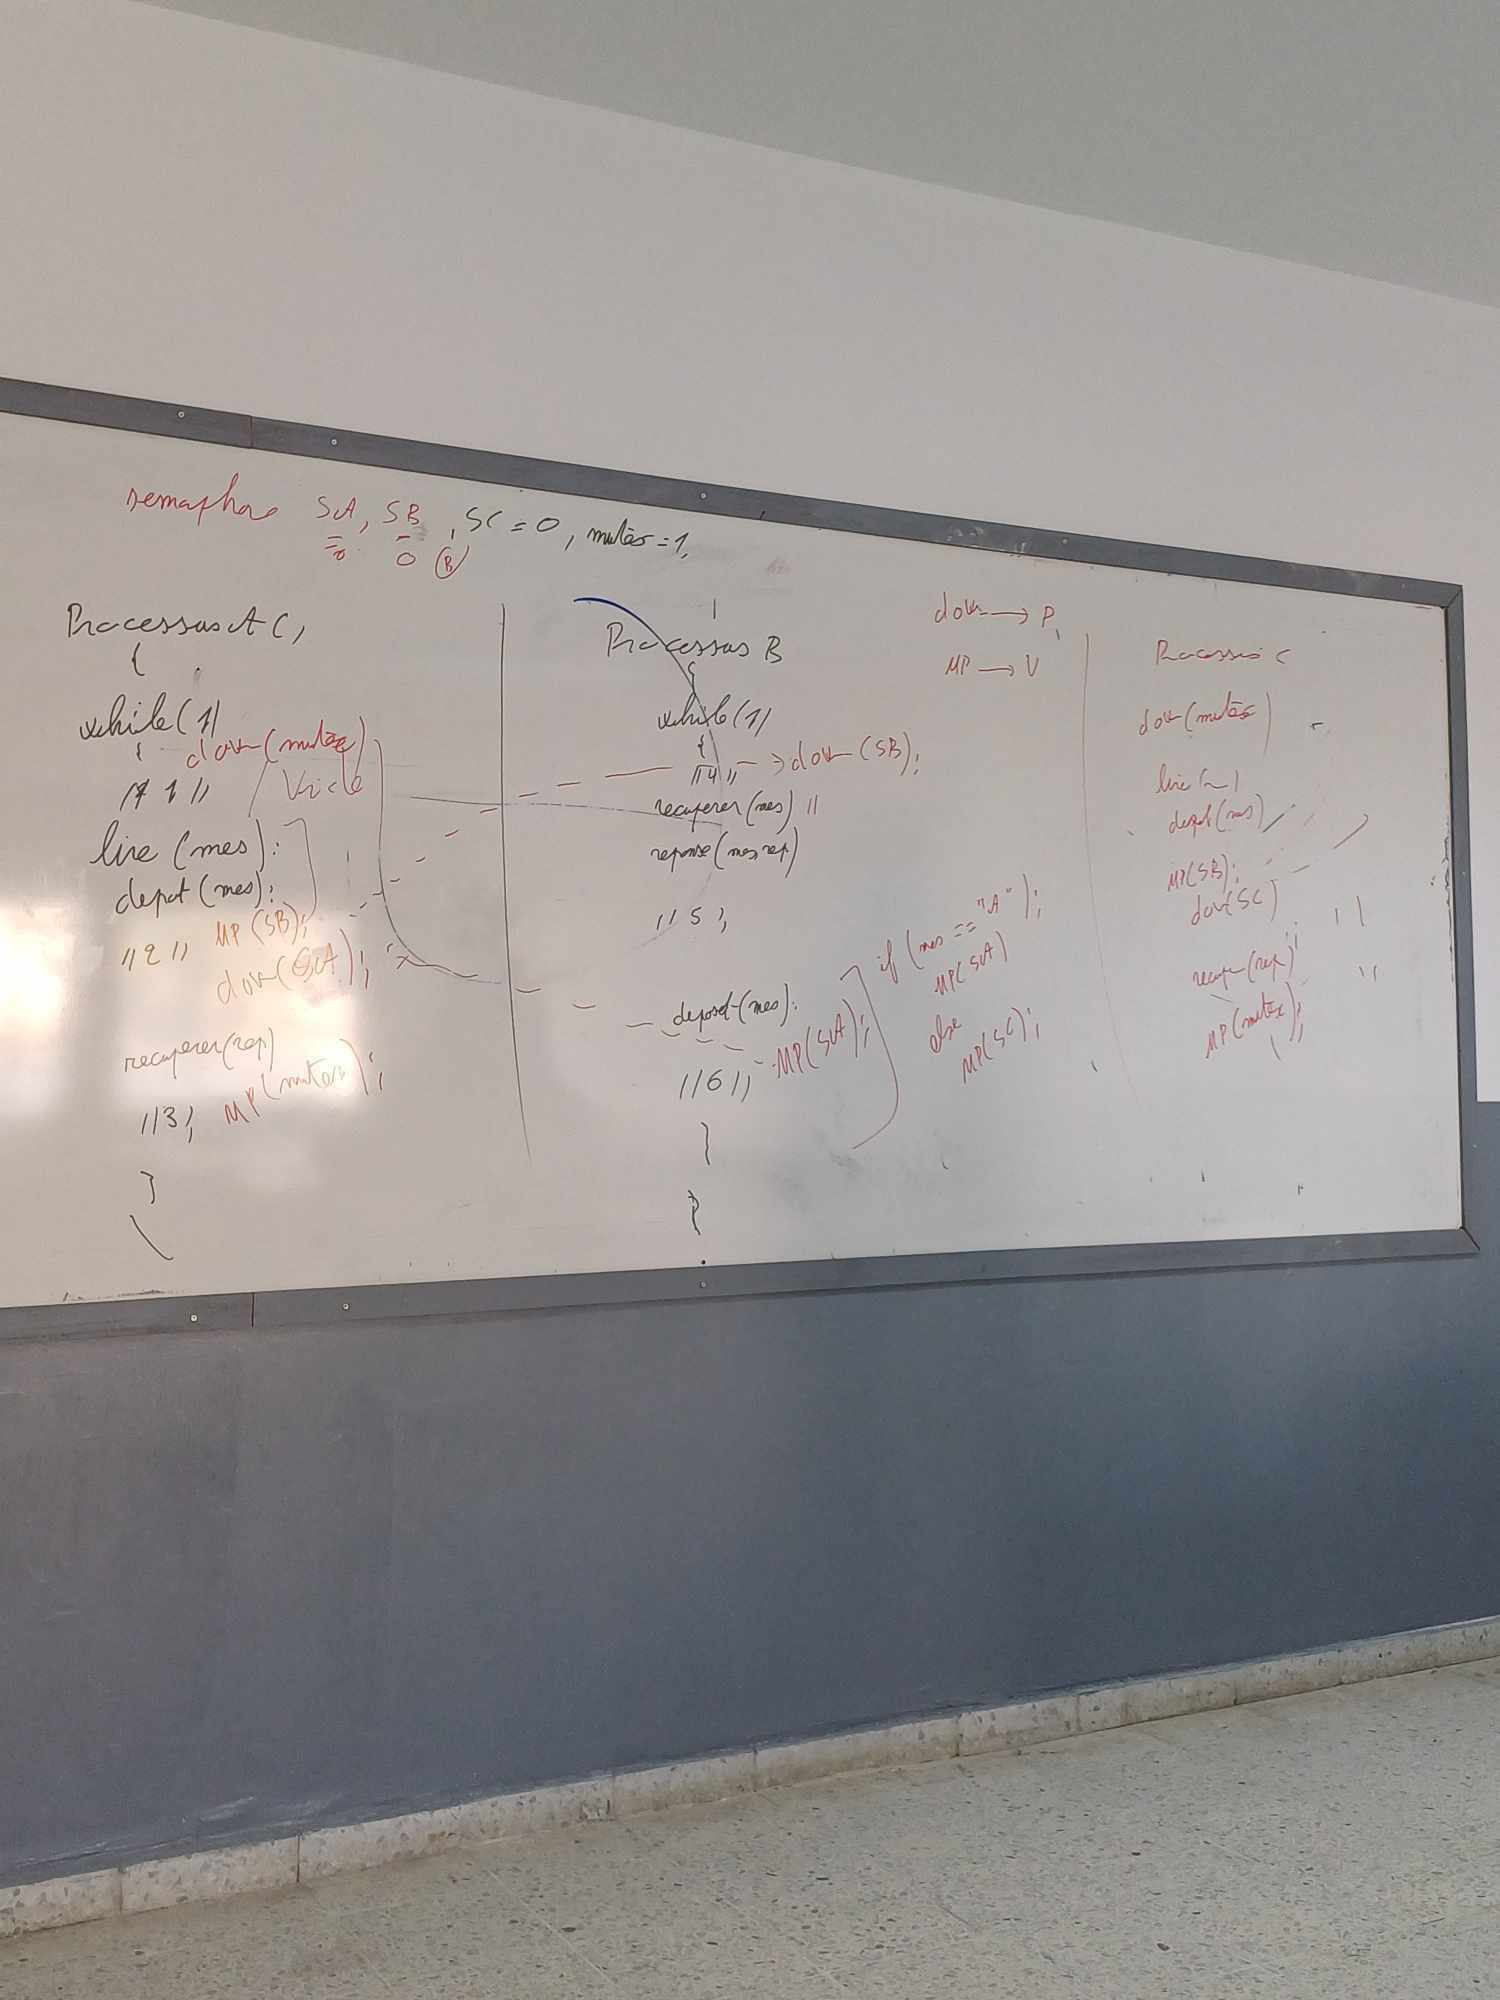 semaphore SA, SB, SC = 0, mutex = 1,
= 0 0 B
Processus A ( )
{
while(1)
{ down (mutex)
// 1 //
Vide
lire (mes);
depot (mes);
// 2 // up (SB);
down (SA);
recuperer (rep)
// 3 // up (mutex);
}
Processus B
{
while(1)
{
// 4 // → down (SB);
recuperer (mes) //
reponse (mes, rep)
// 5 //
deposet (mes);
// 6 // up (SA);
}
}
if (mes == "A");
up (SA)
else
up (SC);
down → P
up → V
Processus C
down (mutex)
lire (~)
depot (mes)
up (SB);
down (SC)
recuper (rep);
up (mutex);